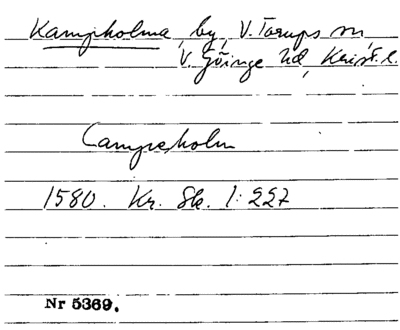 Kampholma, by, V. Torups sn,
V. Göinge hd, Krist. l.
Campeholm
1580. Kr. Sk. 1: 227
Nr 5369.